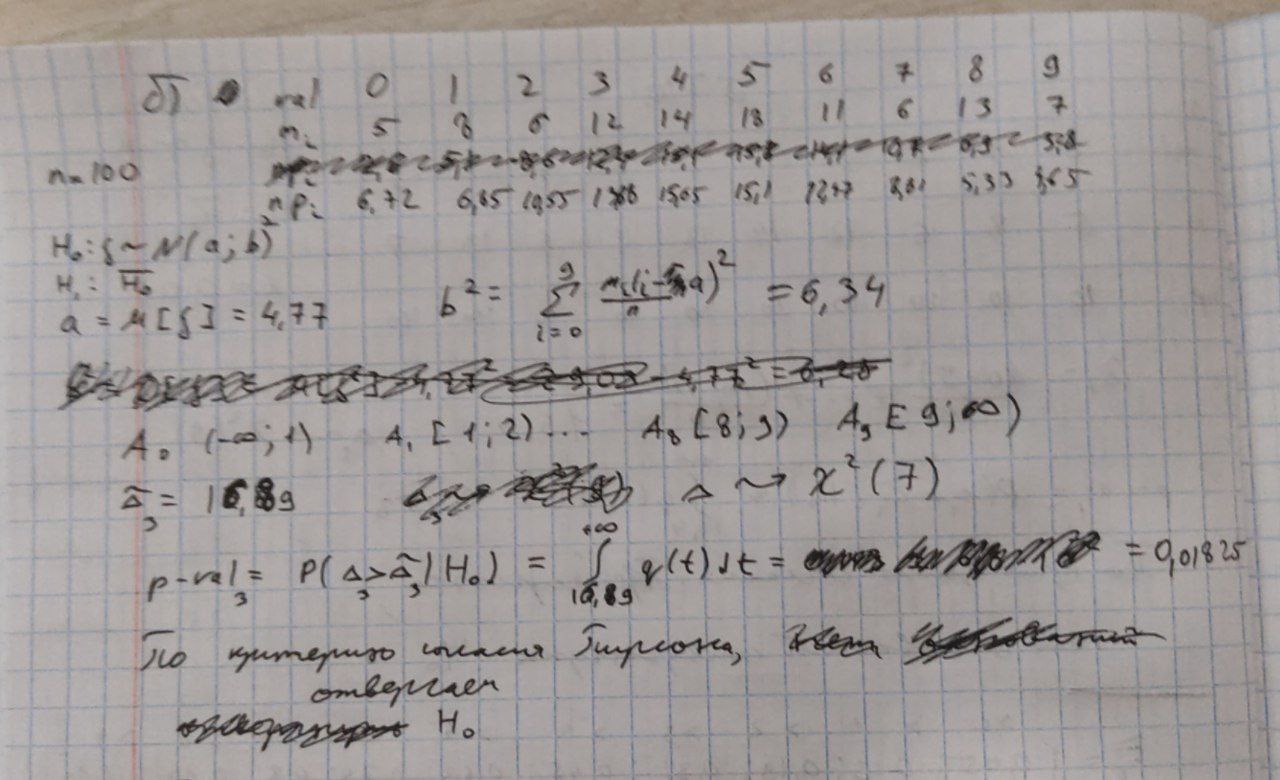 б) val 0 1 2 3 4 5 6 7 8 9
nᵢ 5 8 6 12 14 18 11 6 13 7
n=100
npᵢ 6,72 6,65 10,55 15,05 15,1 12,47 8,61 5,33 3,65
H₀: ξ ~ N(a; b)²
H₁: H̅₀
a = M[ξ] = 4,77 b² = ∑ i=0 9 nᵢ(i-a)²/n = 6,34
A₀ (-∞; 1) A₁ [1; 2) ... A₈ [8; 9) A₉ [9; ∞)
Δ̃₃ = 16,89 Δ ~> χ²(7)
p-val₃ = P(Δ₃>Δ̃₃|H₀) = ∫ 16,89 +∞ q(t)dt = = 0,01825
По критерию согласия Пирсона,
отвергаем
H₀